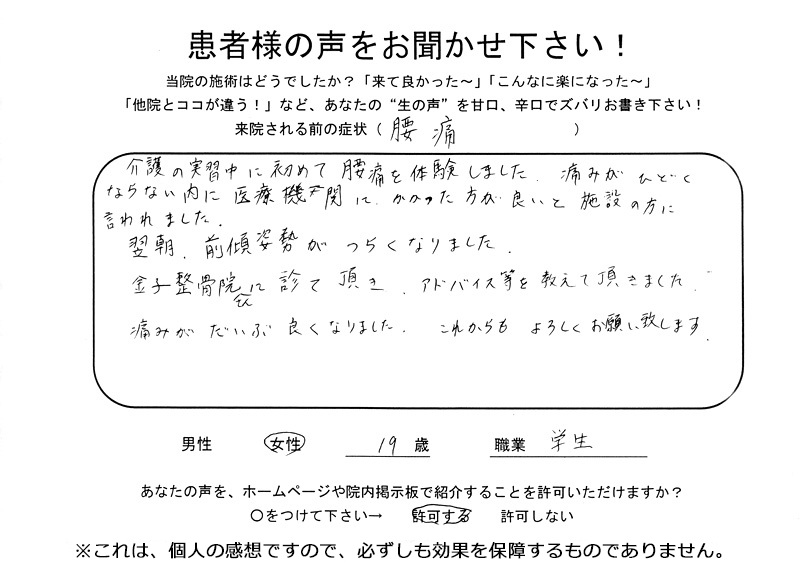 患者様の声をお聞かせ下さい！
当院の施術はどうでしたか？「来て良かった～」「こんなに楽になった～」
「他院とココが違う！」など、あなたの“生の声”を甘口、辛口でズバリお書き下さい！
来院される前の症状（ 腰痛 ）
介護の実習中に初めて腰痛を体験しました。痛みがひどく
ならない内に医療機関に、かかった方が良いと施設の方に
言われました。
翌朝、前傾姿勢がつらくなりました。
金子整骨院に診て頂き、アドバイス等を教えて頂きました。
痛みがだいぶ良くなりました。これからもよろしくお願い致します。
男性 女性 19 歳 職業 学生
あなたの声を、ホームページや院内掲示板で紹介することを許可いただけますか？
○をつけて下さい→ 許可する 許可しない
※これは、個人の感想ですので、必ずしも効果を保障するものでありません。